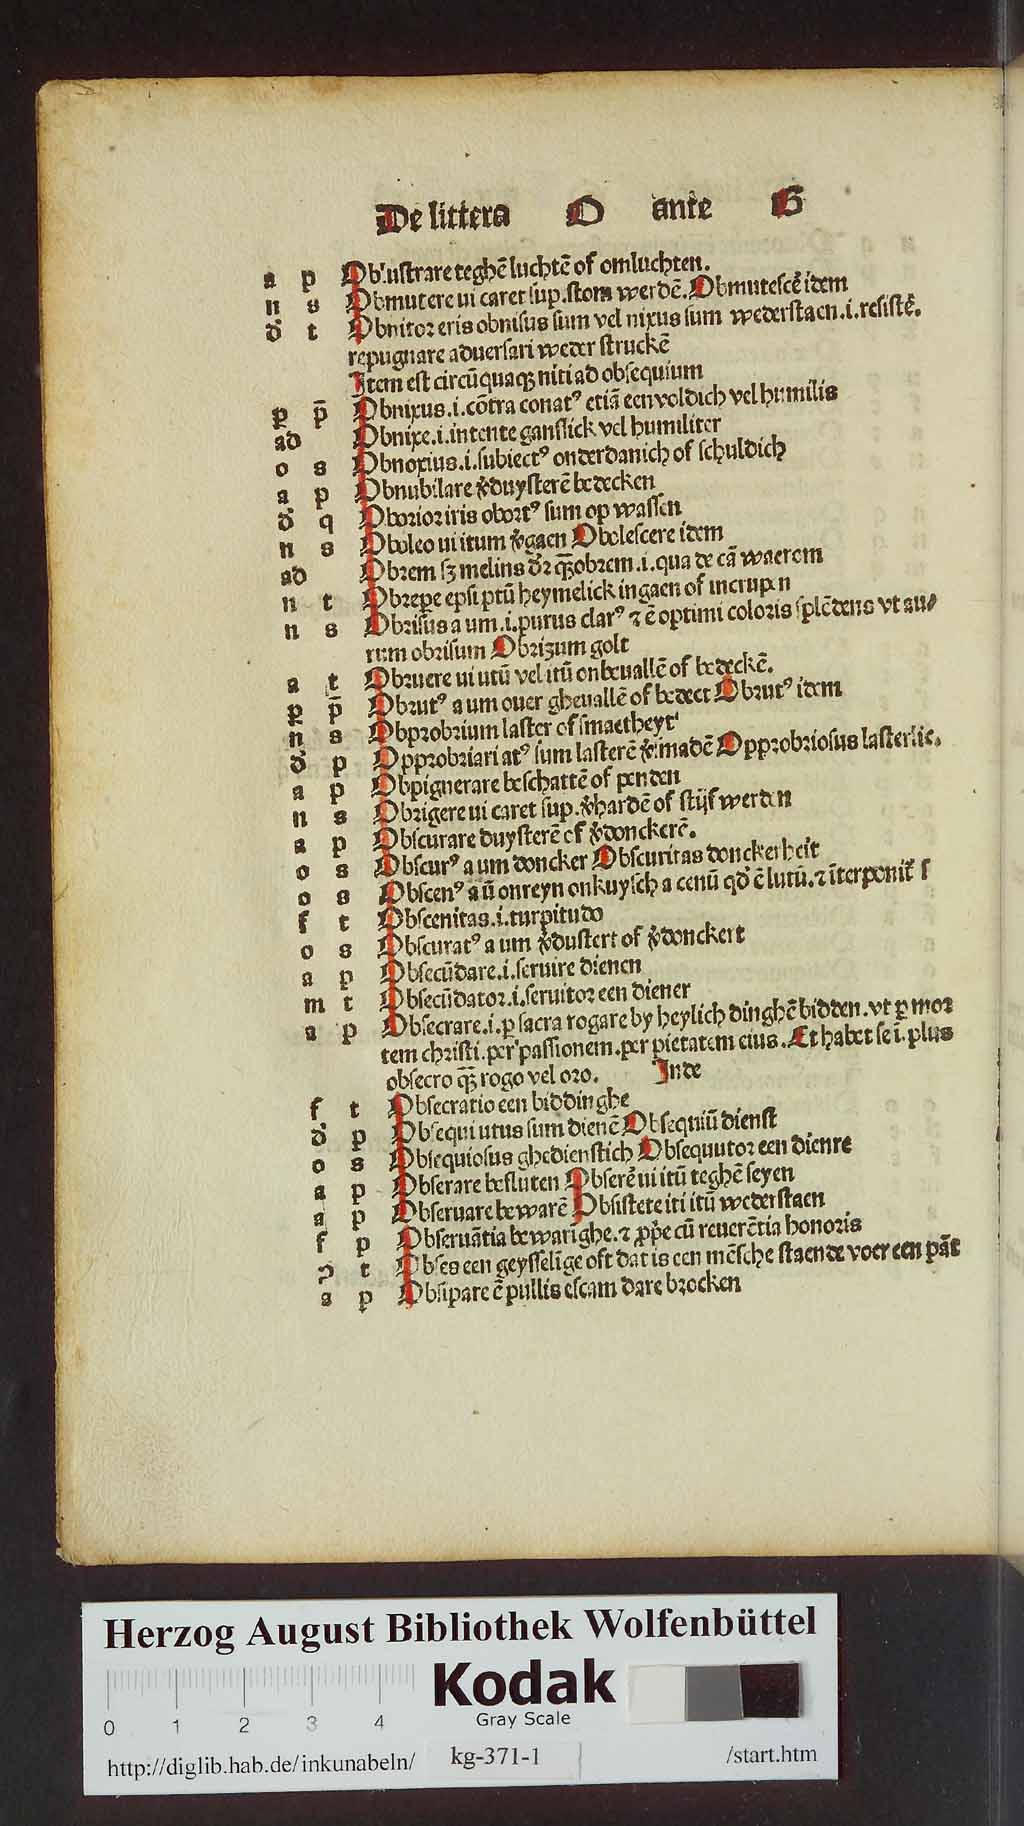 De littera O ante B
a p Obłustrare teghē luchtē of omluchten.
n s Obmutere ui caret sup. stom werdē. Obmutescē idem
đ t Obnitor eris obnisus sum vel nixus sum wederstaen .i. resistē.
repugnare aduersari weder struckē
Item est circūquaqꝫ niti ad obsequium
ꝑ p̄ Obnixus .i. cōtra conatꝰ etiā eenvoldich vel humilis
ad Obnixe .i. intente ganslick vel humiliter
o s Obnoxius .i. subiectꝰ onderdanich of schuldich
a p Obnubilare v̾duysterē bedecken
đ q Oborior iris obortꝰ sum op wassen
n s Oboleo ui itum v̾gaen Obolescere idem
ad Obrem sꝫ melius dr̄ qꝫobrem .i. qua de cā waerom
n t Obrepe epsi ptū heymelick ingaen of incrupen
n s Obrisus a um .i. purus clarꝰ ⁊ ē optimi coloris splēdens vt au/
rum obrisum Obrizum golt
a t Obruere ui utū vel itū onbeuallē of bedeckē.
ꝑ p̄ Obrutꝰ a um ouer gheuallē of bedect Obrutꝰ idem
n s Obprobrium laster of smaetheyt
đ p Opprobriari atꝰ sum lasterē v̾smadē Opprobriosus lasterlic.
a p Obpignerare beschattē of penden
n s Obrigere ui caret sup. v̾hardē of stijf werden
a p Obscurare duysterē of v̾donckerē.
o s Obscurꝰ a um doncker Obscuritas donckerheit
o s Obscenꝰ a ū onreyn onkuysch a cenū qđ ē lutū. ⁊ īterponit̄ s
f t Obscenitas .i. turpitudo
o s Obscuratꝰ a um v̾dustert of v̾donckert
a p Obsecūdare .i. seruire dienen
m t Obsecūdator .i. seruitor een diener
a p Obsecrare .i. ꝑ sacra rogare by heylich dinghē bidden. vt ꝑ mor
tem christi. per passionem. per pietatem eius. Et habet se ī plus
obsecro qꝫ rogo vel oro. Inde
f t Obsecratio een biddinghe
đ p Obsequi utus sum dienē Obsequiū dienst
o s Obsequiosus ghedienstich Obsequutor een dienre
a p Obserare besluten Obserē ui itū teghē seyen
a p Obseruare bewarē Obsistete iti itū wederstaen
f p Obseruātia bewarīghe. ⁊ ꝓpe cū reuerētia honoris
ↄ t Obses een geysselīge oft dat is een mēsche staende voer een pāt
a p Obsipare ē pullis escam dare brocken
Herzog August Bibliothek Wolfenbüttel
Kodak
Gray Scale
0 1 2 3 4
http://diglib.hab.de/inkunabeln/ kg-371-1 /start.htm